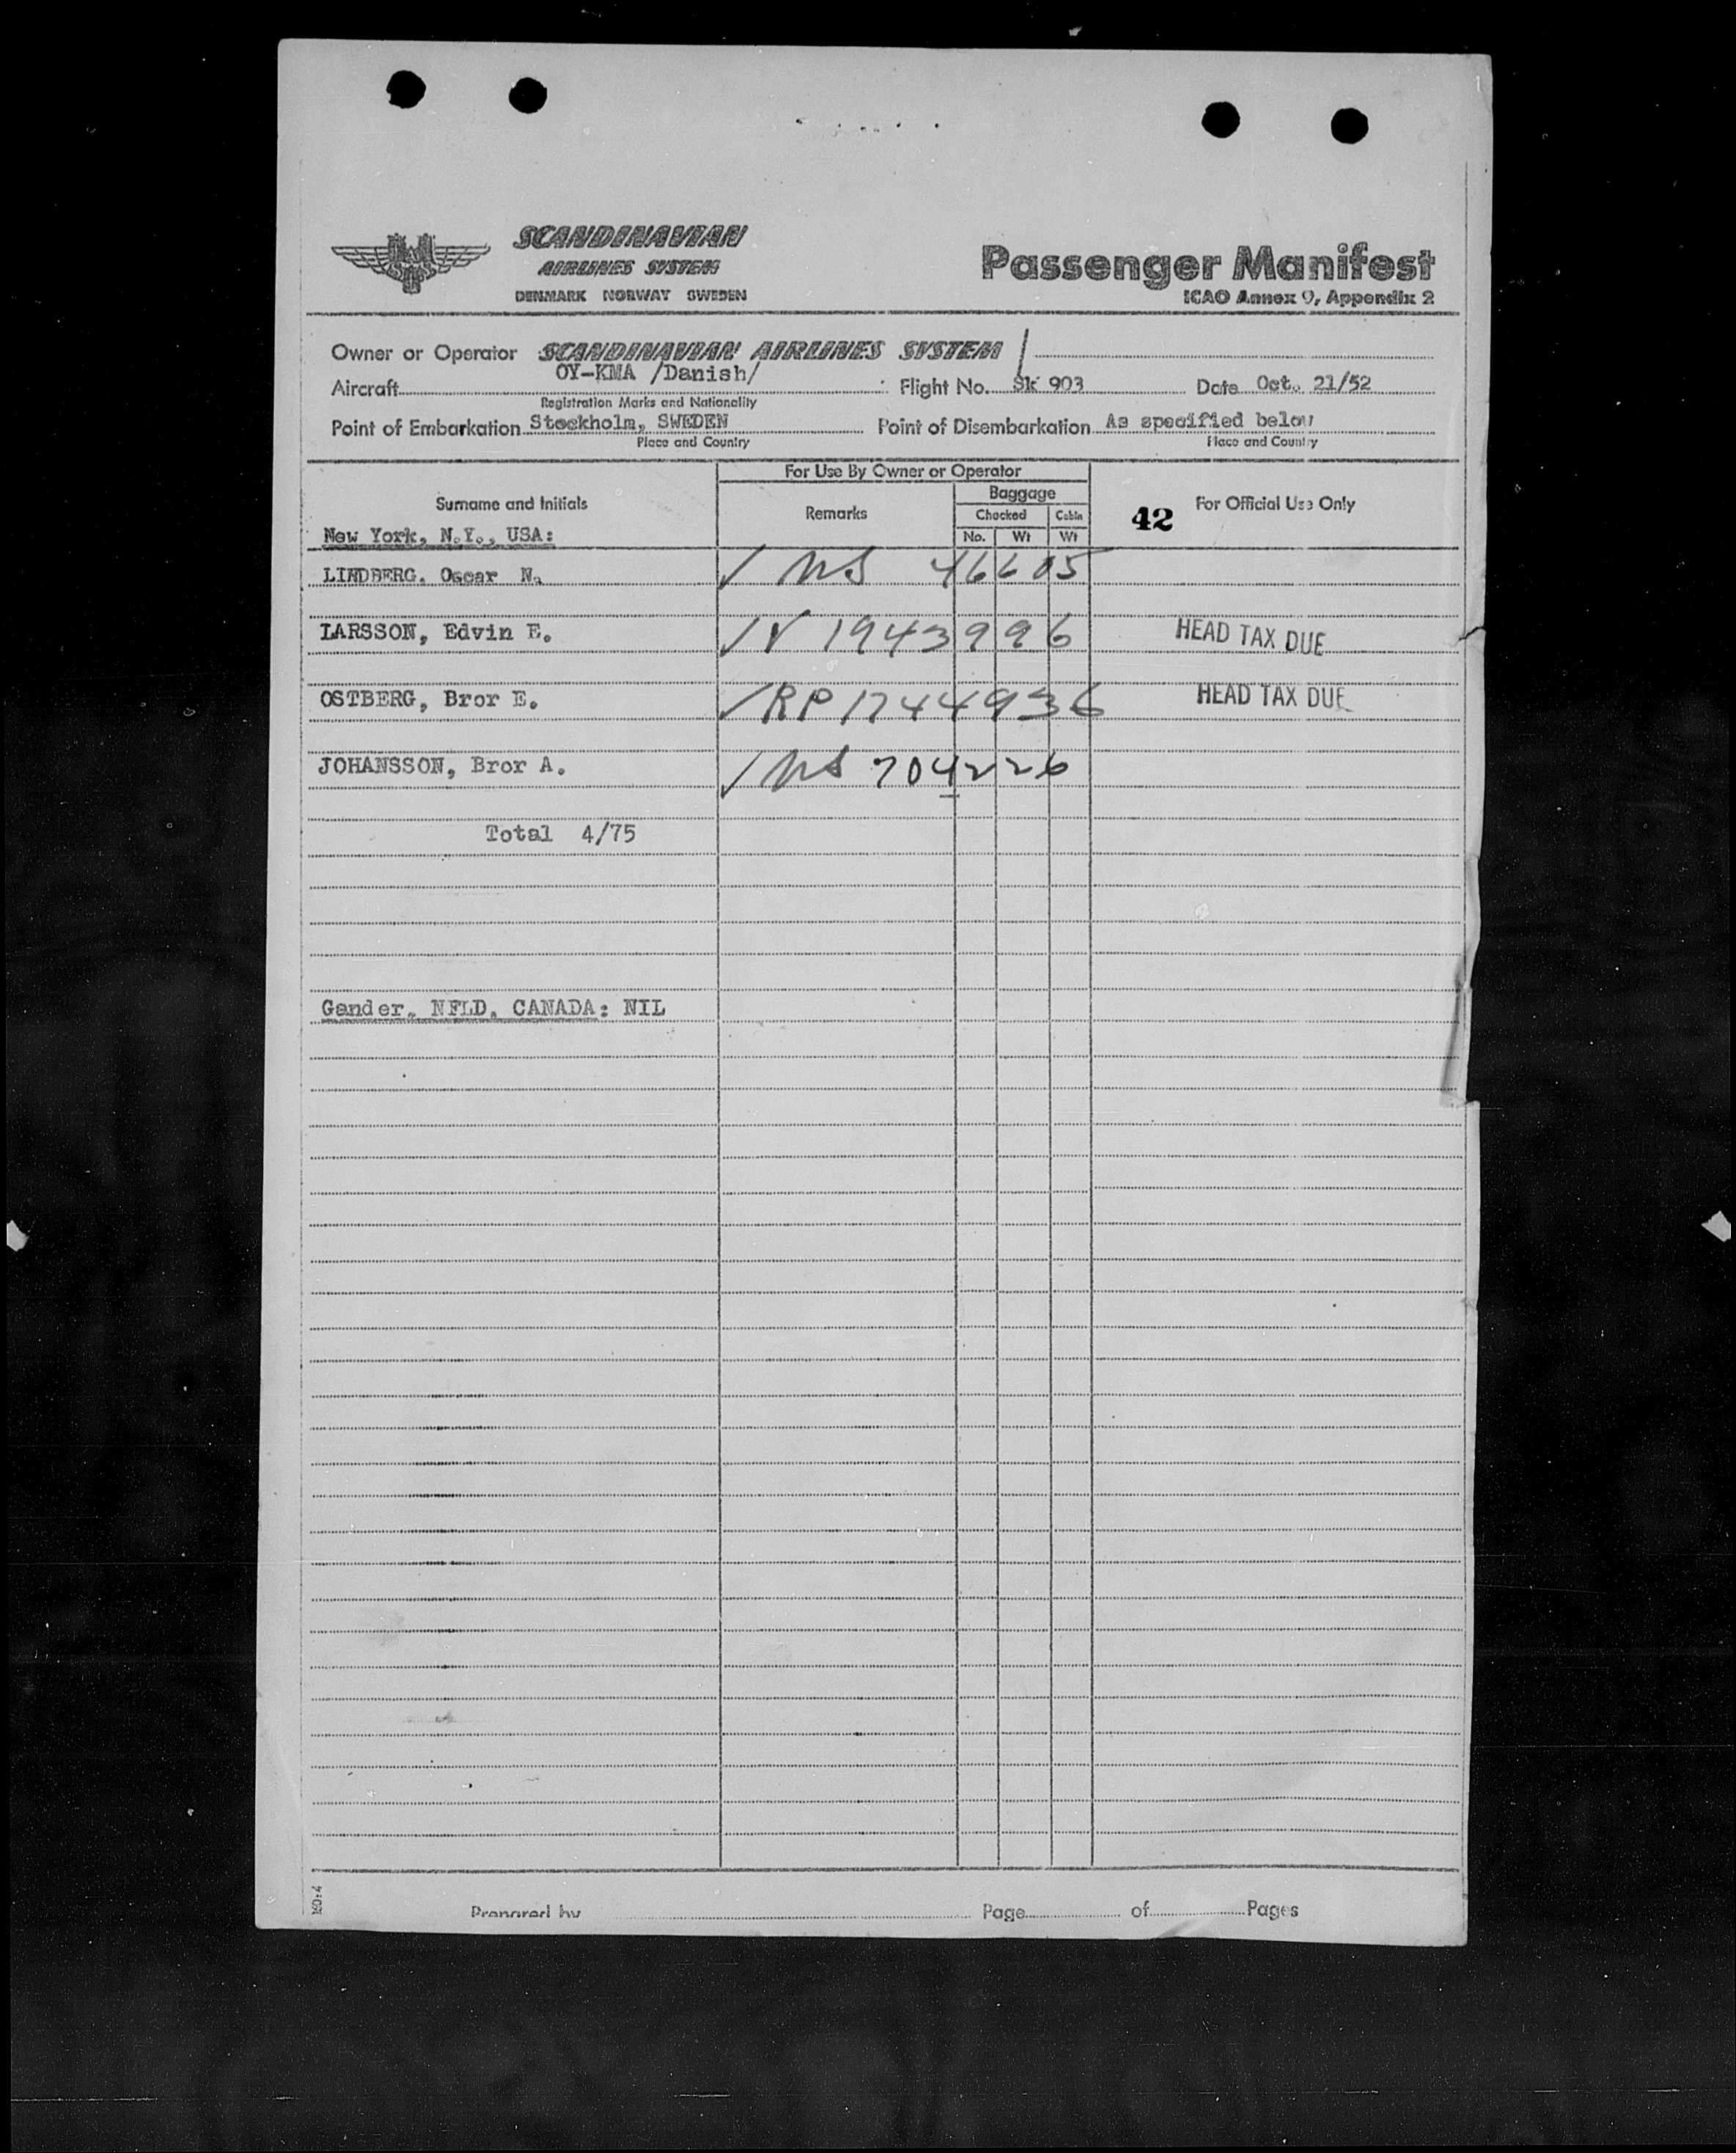 SCANDINAVIAN
AIRLINES SYSTEM
DENMARK NORWAY SWEDEN
Passenger Manifest
ICAO Annex 9, Appendix 2
Owner or Operator SCANDINAVIAN AIRLINES SYSTEM /
Aircraft OY-KMA /Danish/ Flight No. Sk 903 Date Oct. 21/52
Registration Marks and Nationality
Point of Embarkation Stockholm, SWEDEN Point of Disembarkation As specified below
Place and Country Place and Country
For Use By Owner or Operator
Surname and Initials Remarks Baggage 42 For Official Use Only
Checked Cabin
No. Wt Wt
New York, N.Y., USA:
LINDBERG. Oscar N. ✓ NS 46605
LARSSON, Edvin E. ✓ V 1943996 HEAD TAX DUE
OSTBERG, Bror E. ✓ RP 1744936 HEAD TAX DUE
JOHANSSON, Bror A. ✓ NS 704226
Total 4/75
Gander, NFLD, CANADA: NIL
Prepared by Page of Pages